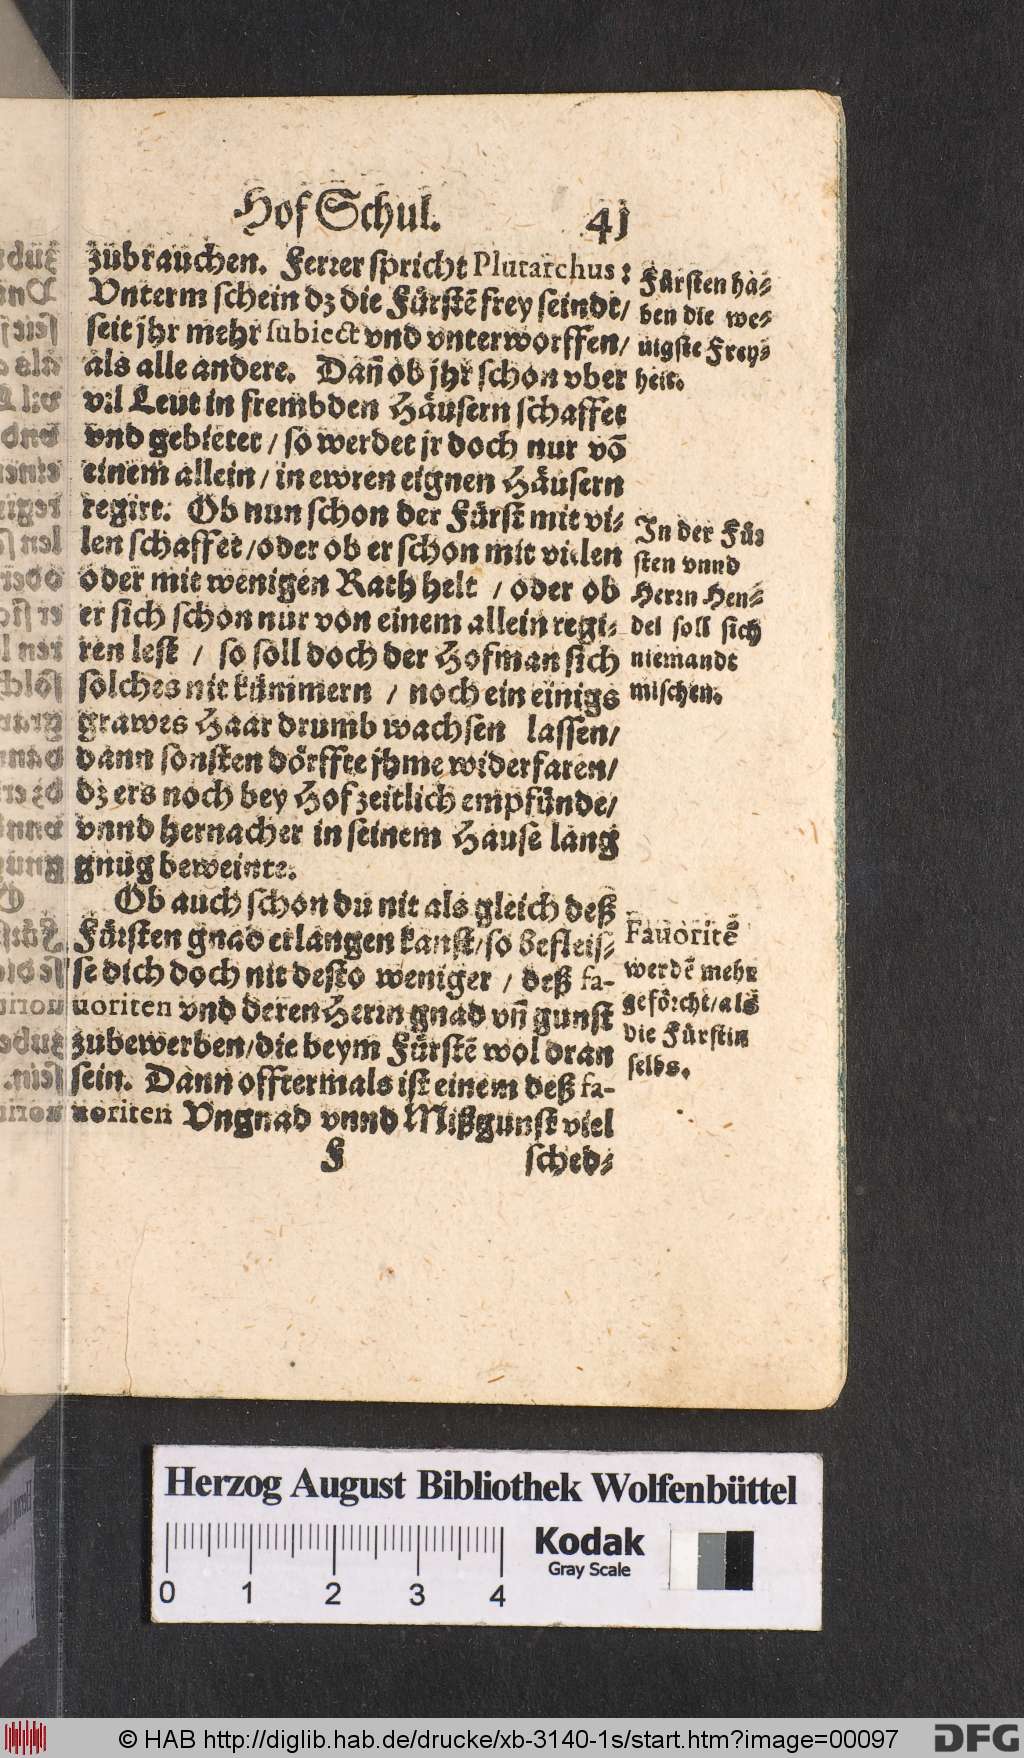 Hof Schul. 41
zubrauchen. Ferrer spricht Plutarchus:
Vnterm schein dz die Fürstē frey seindt/
seit jhr mehr subiect vnd vnterworffen/
als alle andere. Dañ ob jhr schon vber
vil Leut in frembden Häusern schaffet
vnd gebietet / so werdet jr doch nur vō
einem allein / in ewren eignen Häusern
regirt. Ob nun schon der Fürst mit vi-
len schaffet / oder ob er schon mit vielen
oder mit wenigen Rath helt / oder ob
er sich schon nur von einem allein regi-
ren lest / so soll doch der Hofman sich
solches nit kümmern / noch ein einigs
grawes Haar drumb wachsen lassen/
dann sonsten dörffte jhme widerfaren/
dz ers noch bey Hof zeitlich empfünde/
vnnd hernacher in seinem Hause lang
gnug beweinte.
Ob auch schon du nit als gleich deß
Fürsten gnad erlangen kanst / so befleis-
se dich doch nit desto weniger / deß fa-
uoriten vnd deren Herrn gnad vñ gunst
zubewerben / die beym Fürstē wol dran
sein. Dann offtermals ist einem deß fa-
uoriten Vngnad vnnd Mißgunst viel
F sched-
Fürsten ha-
ben die we-
nigste Frey-
heit.
In der Für
sten vnnd
Herrn Hen-
del soll sich
niemandt
mischen.
Fauoritē
werdē mehr
geförcht / als
die Fürstin
selbs.
Herzog August Bibliothek Wolfenbüttel
Kodak
Gray Scale
0 1 2 3 4
© HAB http://diglib.hab.de/drucke/xb-3140-1s/start.htm?image=00097
DFG